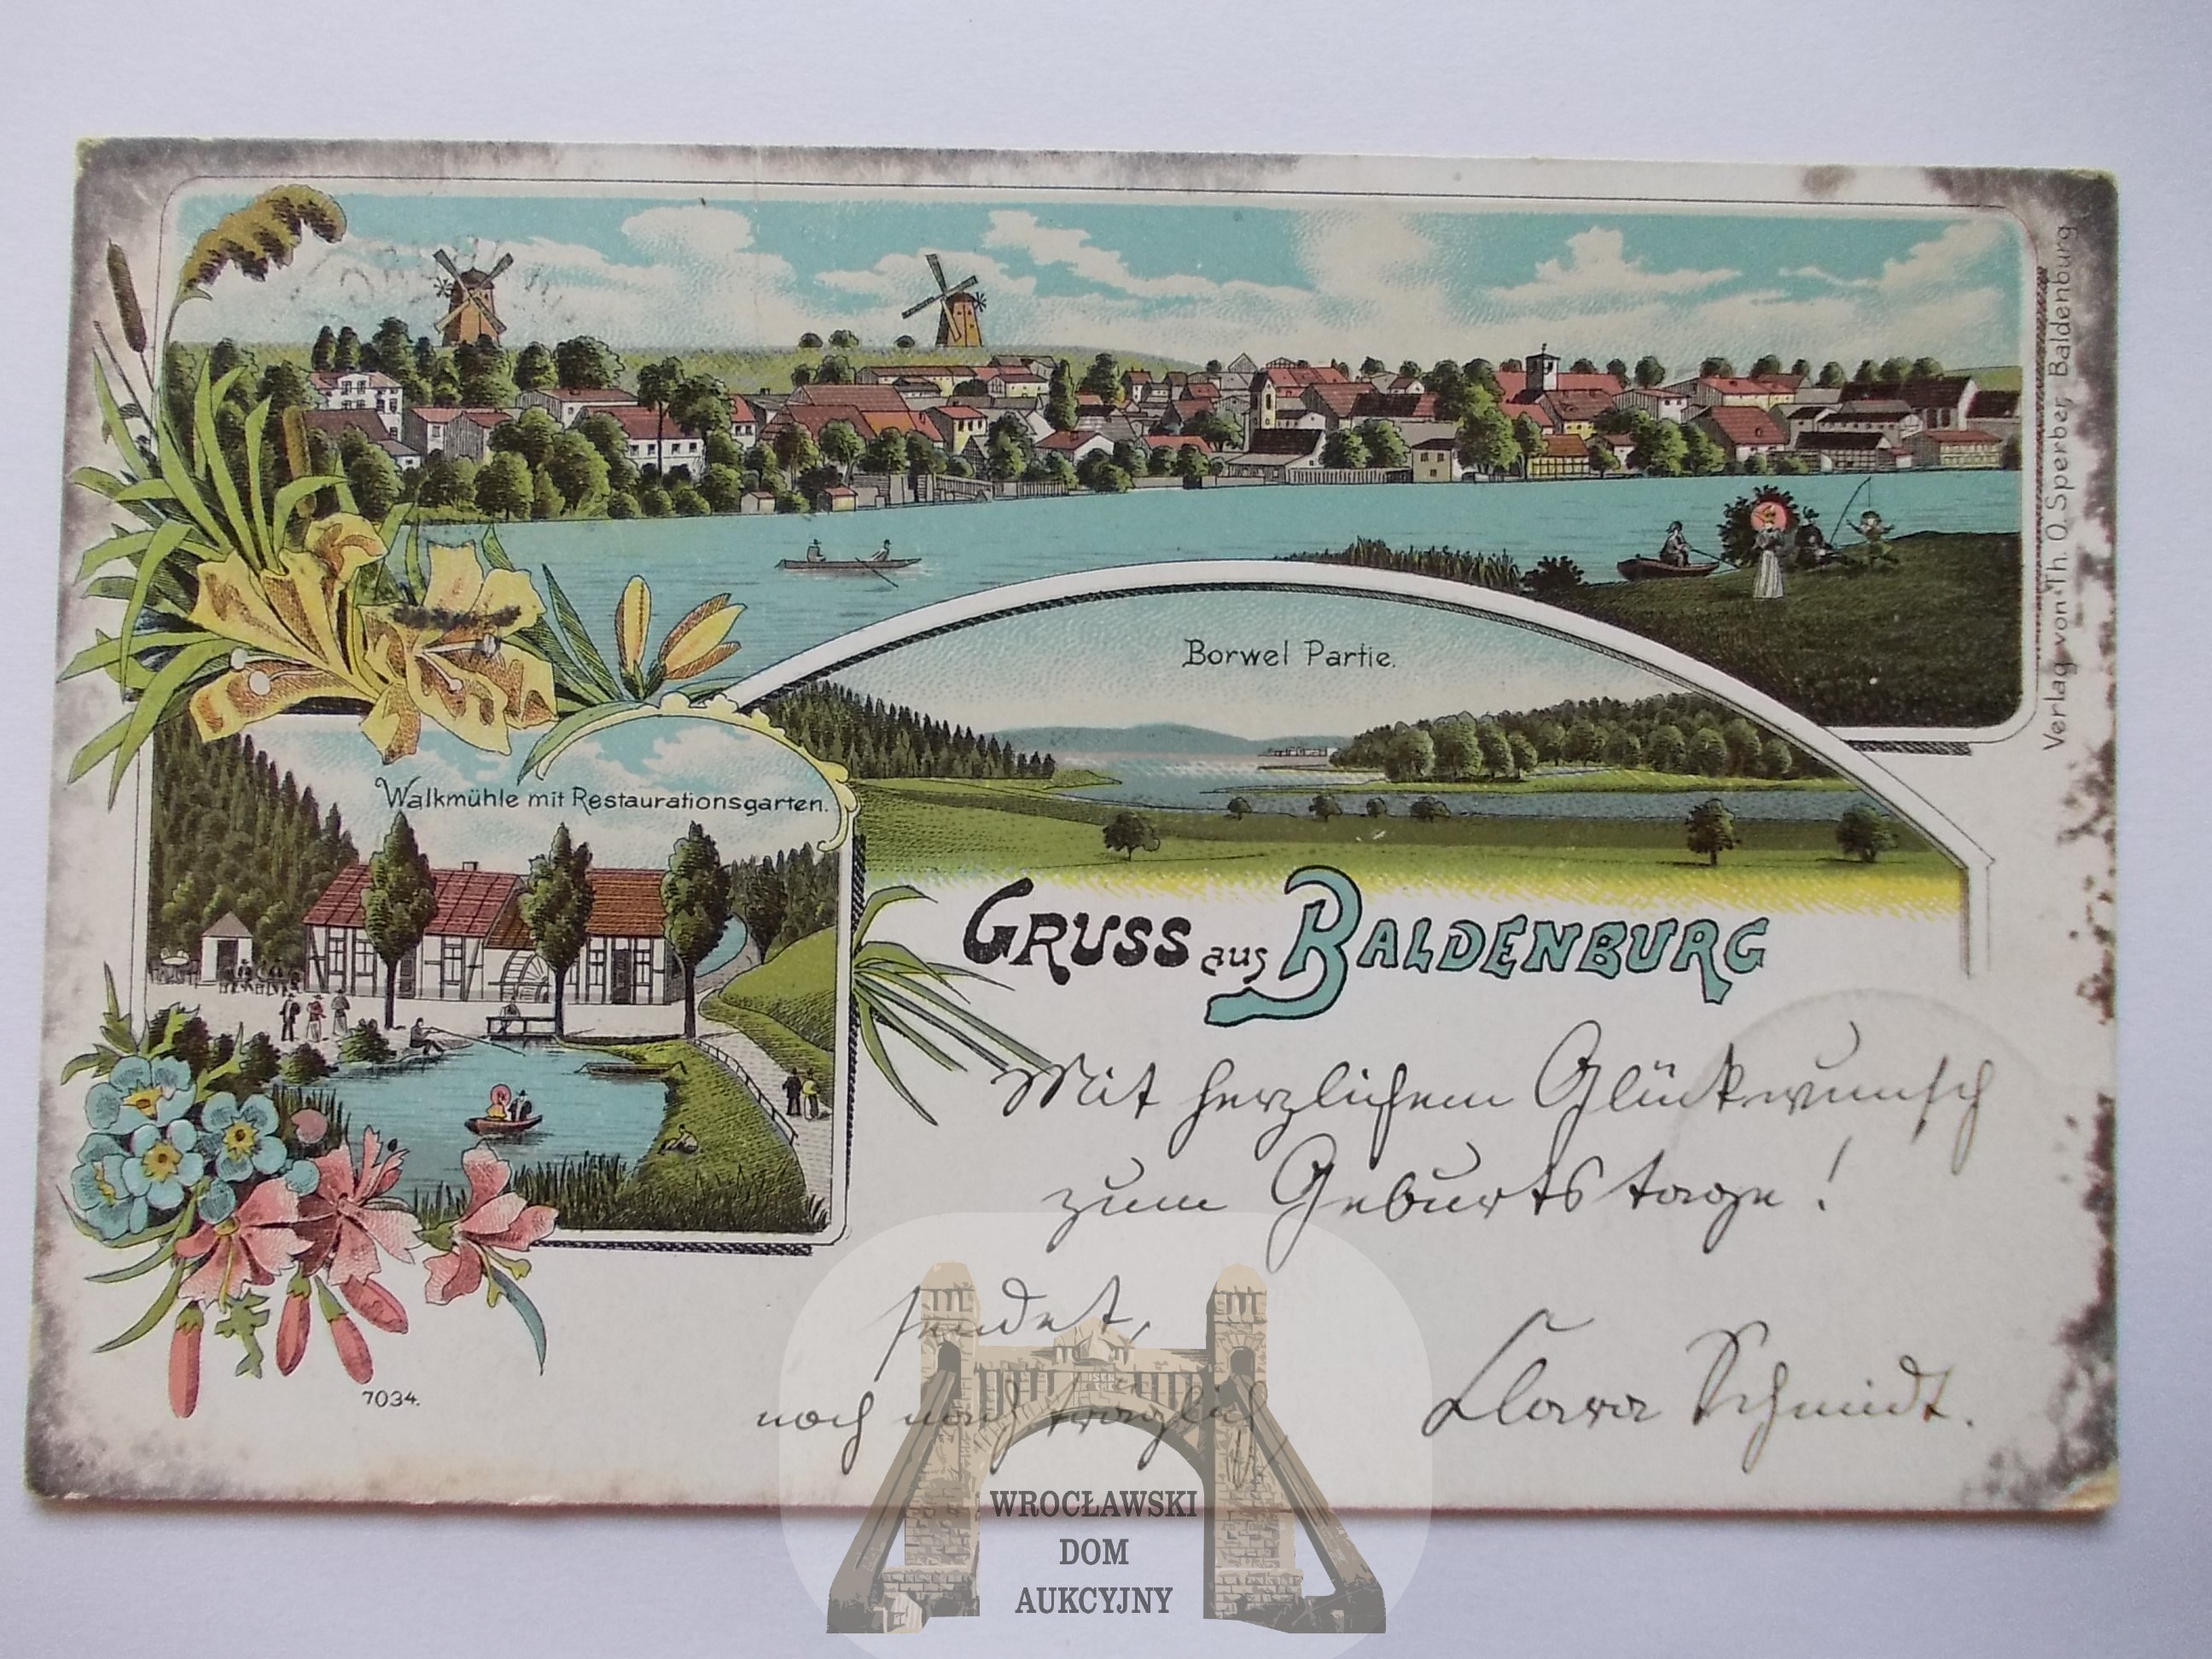 Verlag von Th. O. Sperber, Baldenburg
Borwel Partie.
Walkmühle mit Restaurationsgarten.
GRUSS aus BALDENBURG
Mit herzlichem Glückwunsch
zum Geburtstage!
sendet,
noch nachträglich,
Clara Schmidt.
7034.
WROCŁAWSKI
DOM
AUKCYJNY